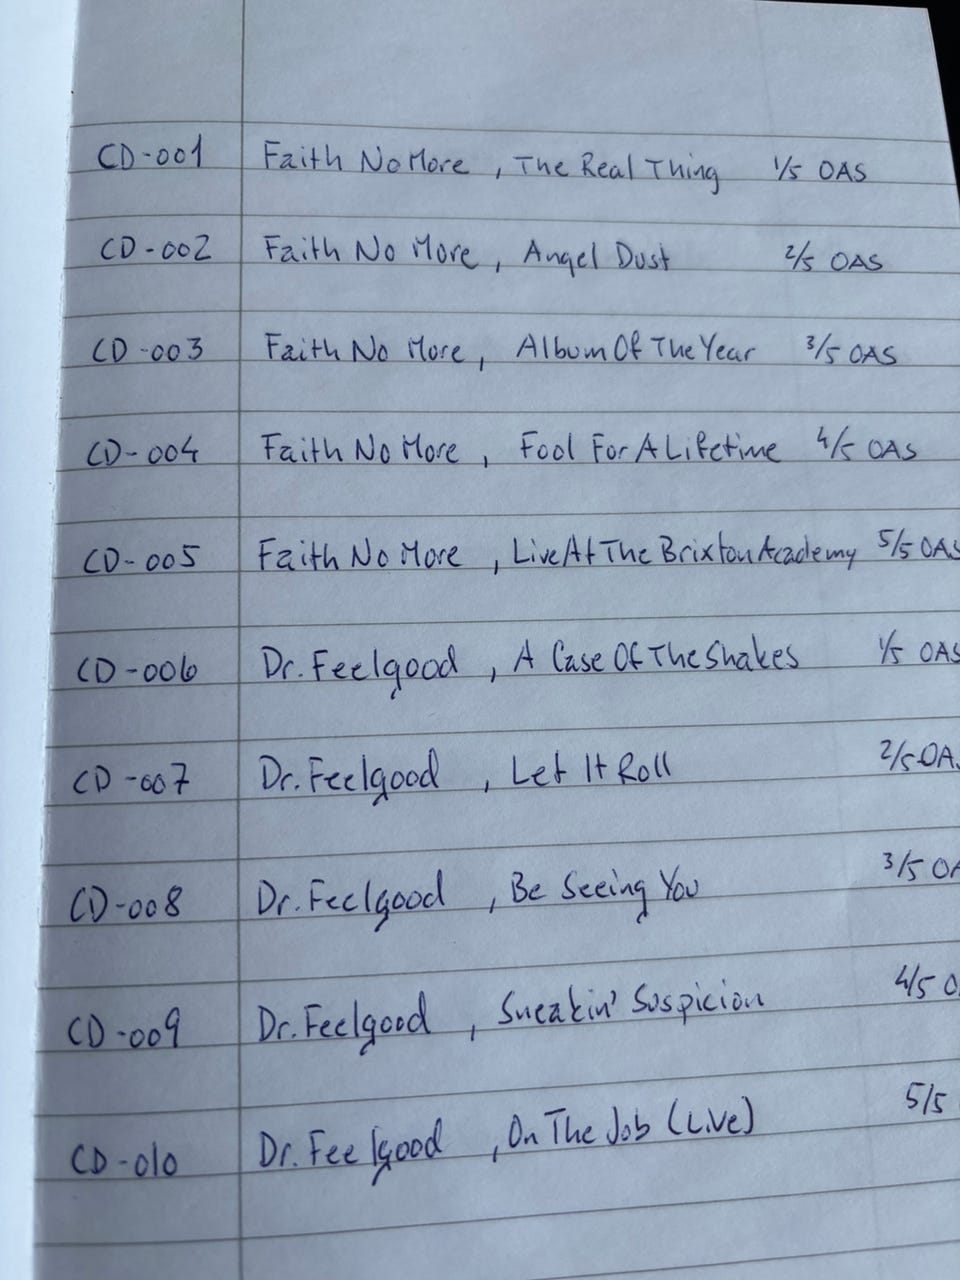 CD-001 Faith No More, The Real Thing 1/5 OAS
CD-002 Faith No More, Angel Dust 2/5 OAS
CD-003 Faith No More, Album Of The Year 3/5 OAS
CD-004 Faith No More, Fool For A Lifetime 4/5 OAS
CD-005 Faith No More, Live At The Brixton Academy 5/5 OAS
CD-006 Dr. Feelgood, A Case Of The Shakes 1/5 OAS
CD-007 Dr. Feelgood, Let It Roll 2/5 OA
CD-008 Dr. Feelgood, Be Seeing You 3/5 OA
CD-009 Dr. Feelgood, Sneakin' Suspicion 4/5 O
CD-010 Dr. Feelgood, On The Job (Live) 5/5